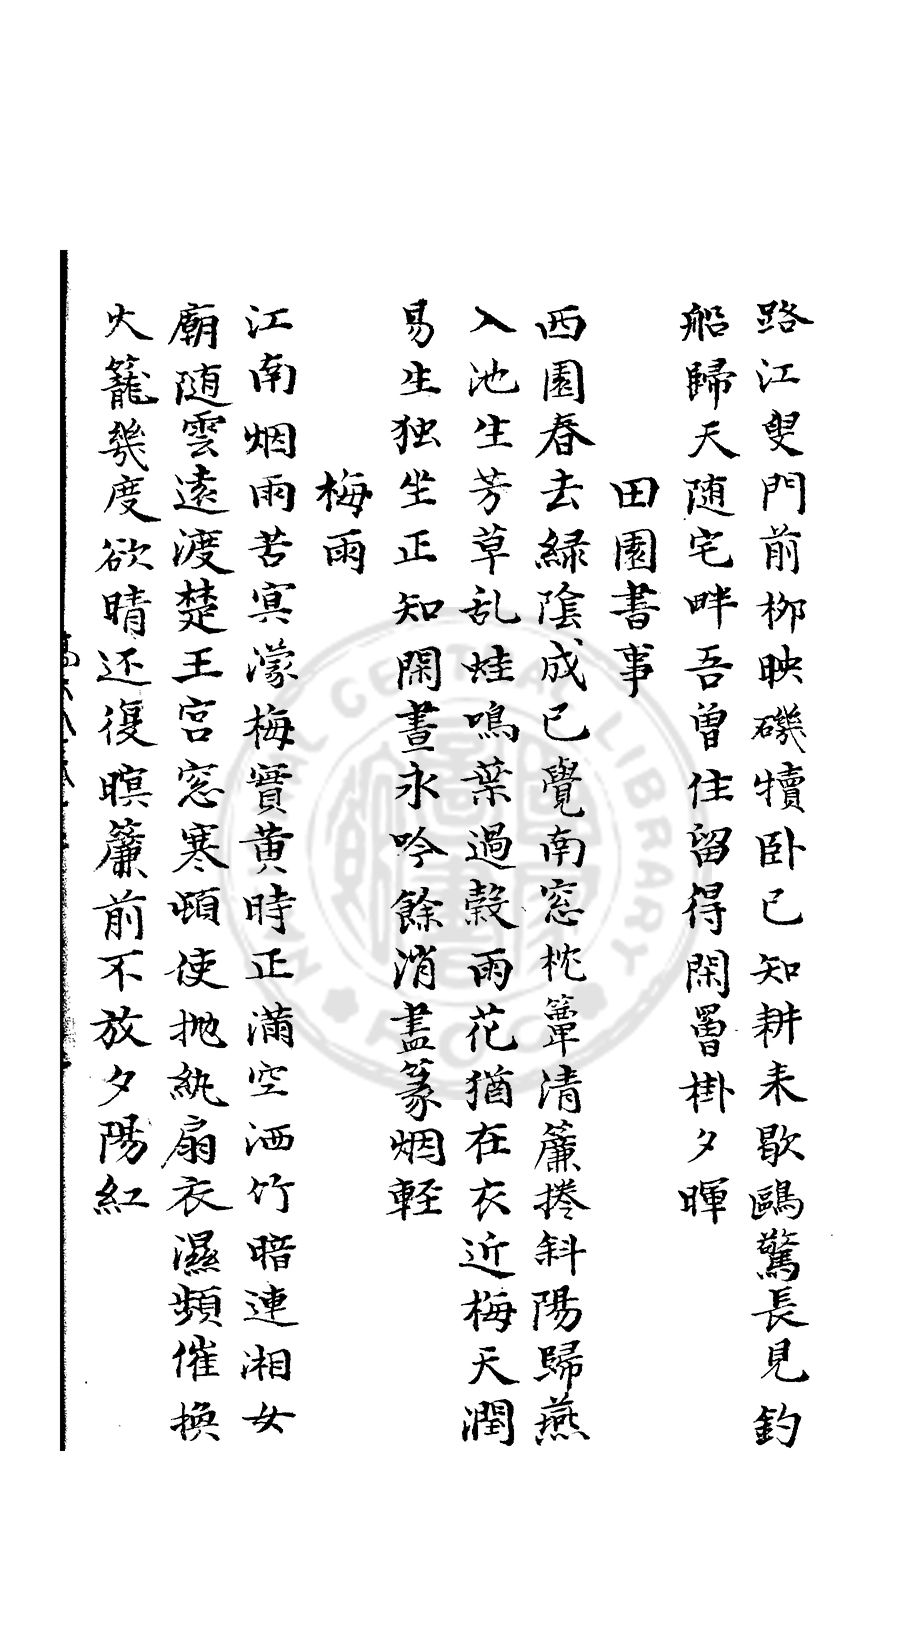 路江叟門前栁映磯犢卧已知耕耒歇鷗驚長見釣
船歸天随宅畔吾曽住留得閑罾掛夕暉
田園書事
西園春去緑陰成已覺南窓枕簟清簾捲斜陽歸燕
入池生芳草乱蛙鳴葉過穀雨花猶在衣近梅天潤
易生独坐正知閑晝永吟餘消盡篆烟軽
梅雨
江南烟雨苦冥濛梅實黄時正滿空洒竹暗連湘女
廟随雲遠渡楚王宫窓寒頓使抛紈扇衣濕頻催換
火籠幾度欲晴还復暝簾前不放夕陽紅
NATIONAL CENTRAL LIBRARY
R.O.C.